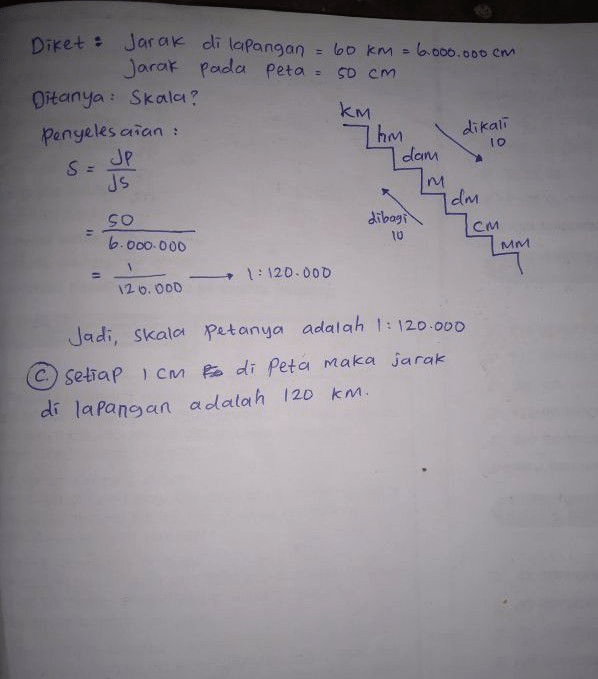 Diket : Jarak di lapangan = 60 KM = 6.000.000 cm
Jarak pada peta = 50 cm
Ditanya : Skala?
Penyelesaian :
S = JP
JS
= 50
6.000.000
= 1
120.000 → 1 : 120.000
KM
hm
dam
M
dm
CM
MM
dikali
10
dibagi
10
Jadi, skala petanya adalah 1 : 120.000
C. setiap 1 CM di peta maka jarak
di lapangan adalah 120 KM.